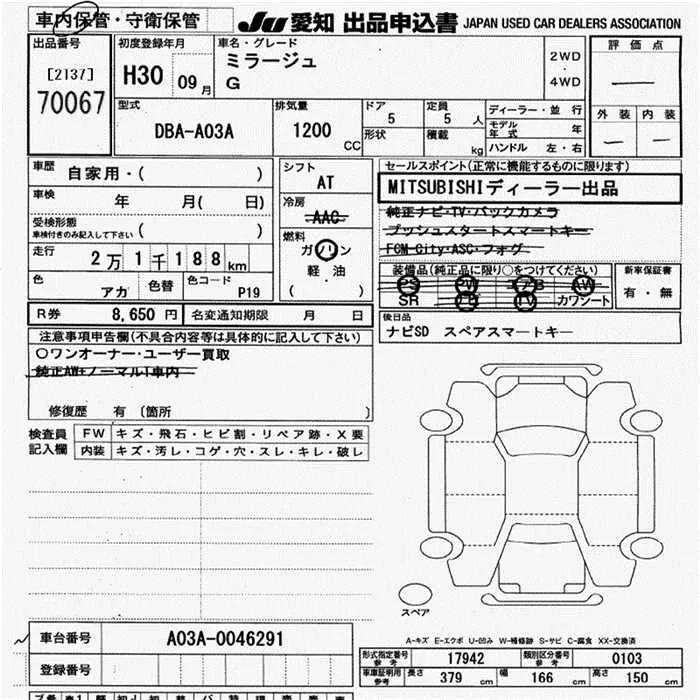 車内保管・守衛保管
JU 愛知 出品申込書 JAPAN USED CAR DEALERS ASSOCIATION
出品番号 初度登録年月 車名・グレード 評価点
[2137] H30 09月 ミラージュ 2WD
70067 G ・ 4WD
型式 排気量 ドア 定員 ディーラー・並行 外装 内装
DBA-A03A 1200 CC 5 5人 モデル年式 年
形状 積載 kg ハンドル 左・右
車歴 自家用・( ) シフト セールスポイント(正常に機能するものに限ります)
AT
車検 年 月( 日) 冷房 MITSUBISHIディーラー出品
AAC 純正ナビ・TV・バックカメラ
受検形態 車検付きのみ記入して下さい ( ) 燃料 プッシュスタートスマートキー
走行 2万1千188km ガソリン FCM-City・ASC・フォグ
軽・油
色 アカ 色替 色コード P19 ( )
装備品(純正品に限り○をつけてください) 新車保証書
PS PW AB AW 有・無
SR TV カワシート
R券 8,650円 名変通知期限 月 日 後日品
ナビSD スペアスマートキー
注意事項申告欄(不具合内容等は具体的に記入して下さい)
○ワンオーナー・ユーザー買取
純正AW+ノーマルT車内
修復歴 有 〔箇所 〕
検査員記入欄 FW キズ・飛石・ヒビ割・リペア跡・X要
内装 キズ・汚レ・コゲ・穴・スレ・キレ・破レ
スペア
A-キズ E-エクボ U-凹み W-補修跡 S-サビ C-腐食 XX-交換済
車台番号 A03A-0046291
形式指定番号 参考 17942 類別区分番号 参考 0103
登録番号
車庫証明用 参考 長さ 379cm 幅 166cm 高さ 150cm